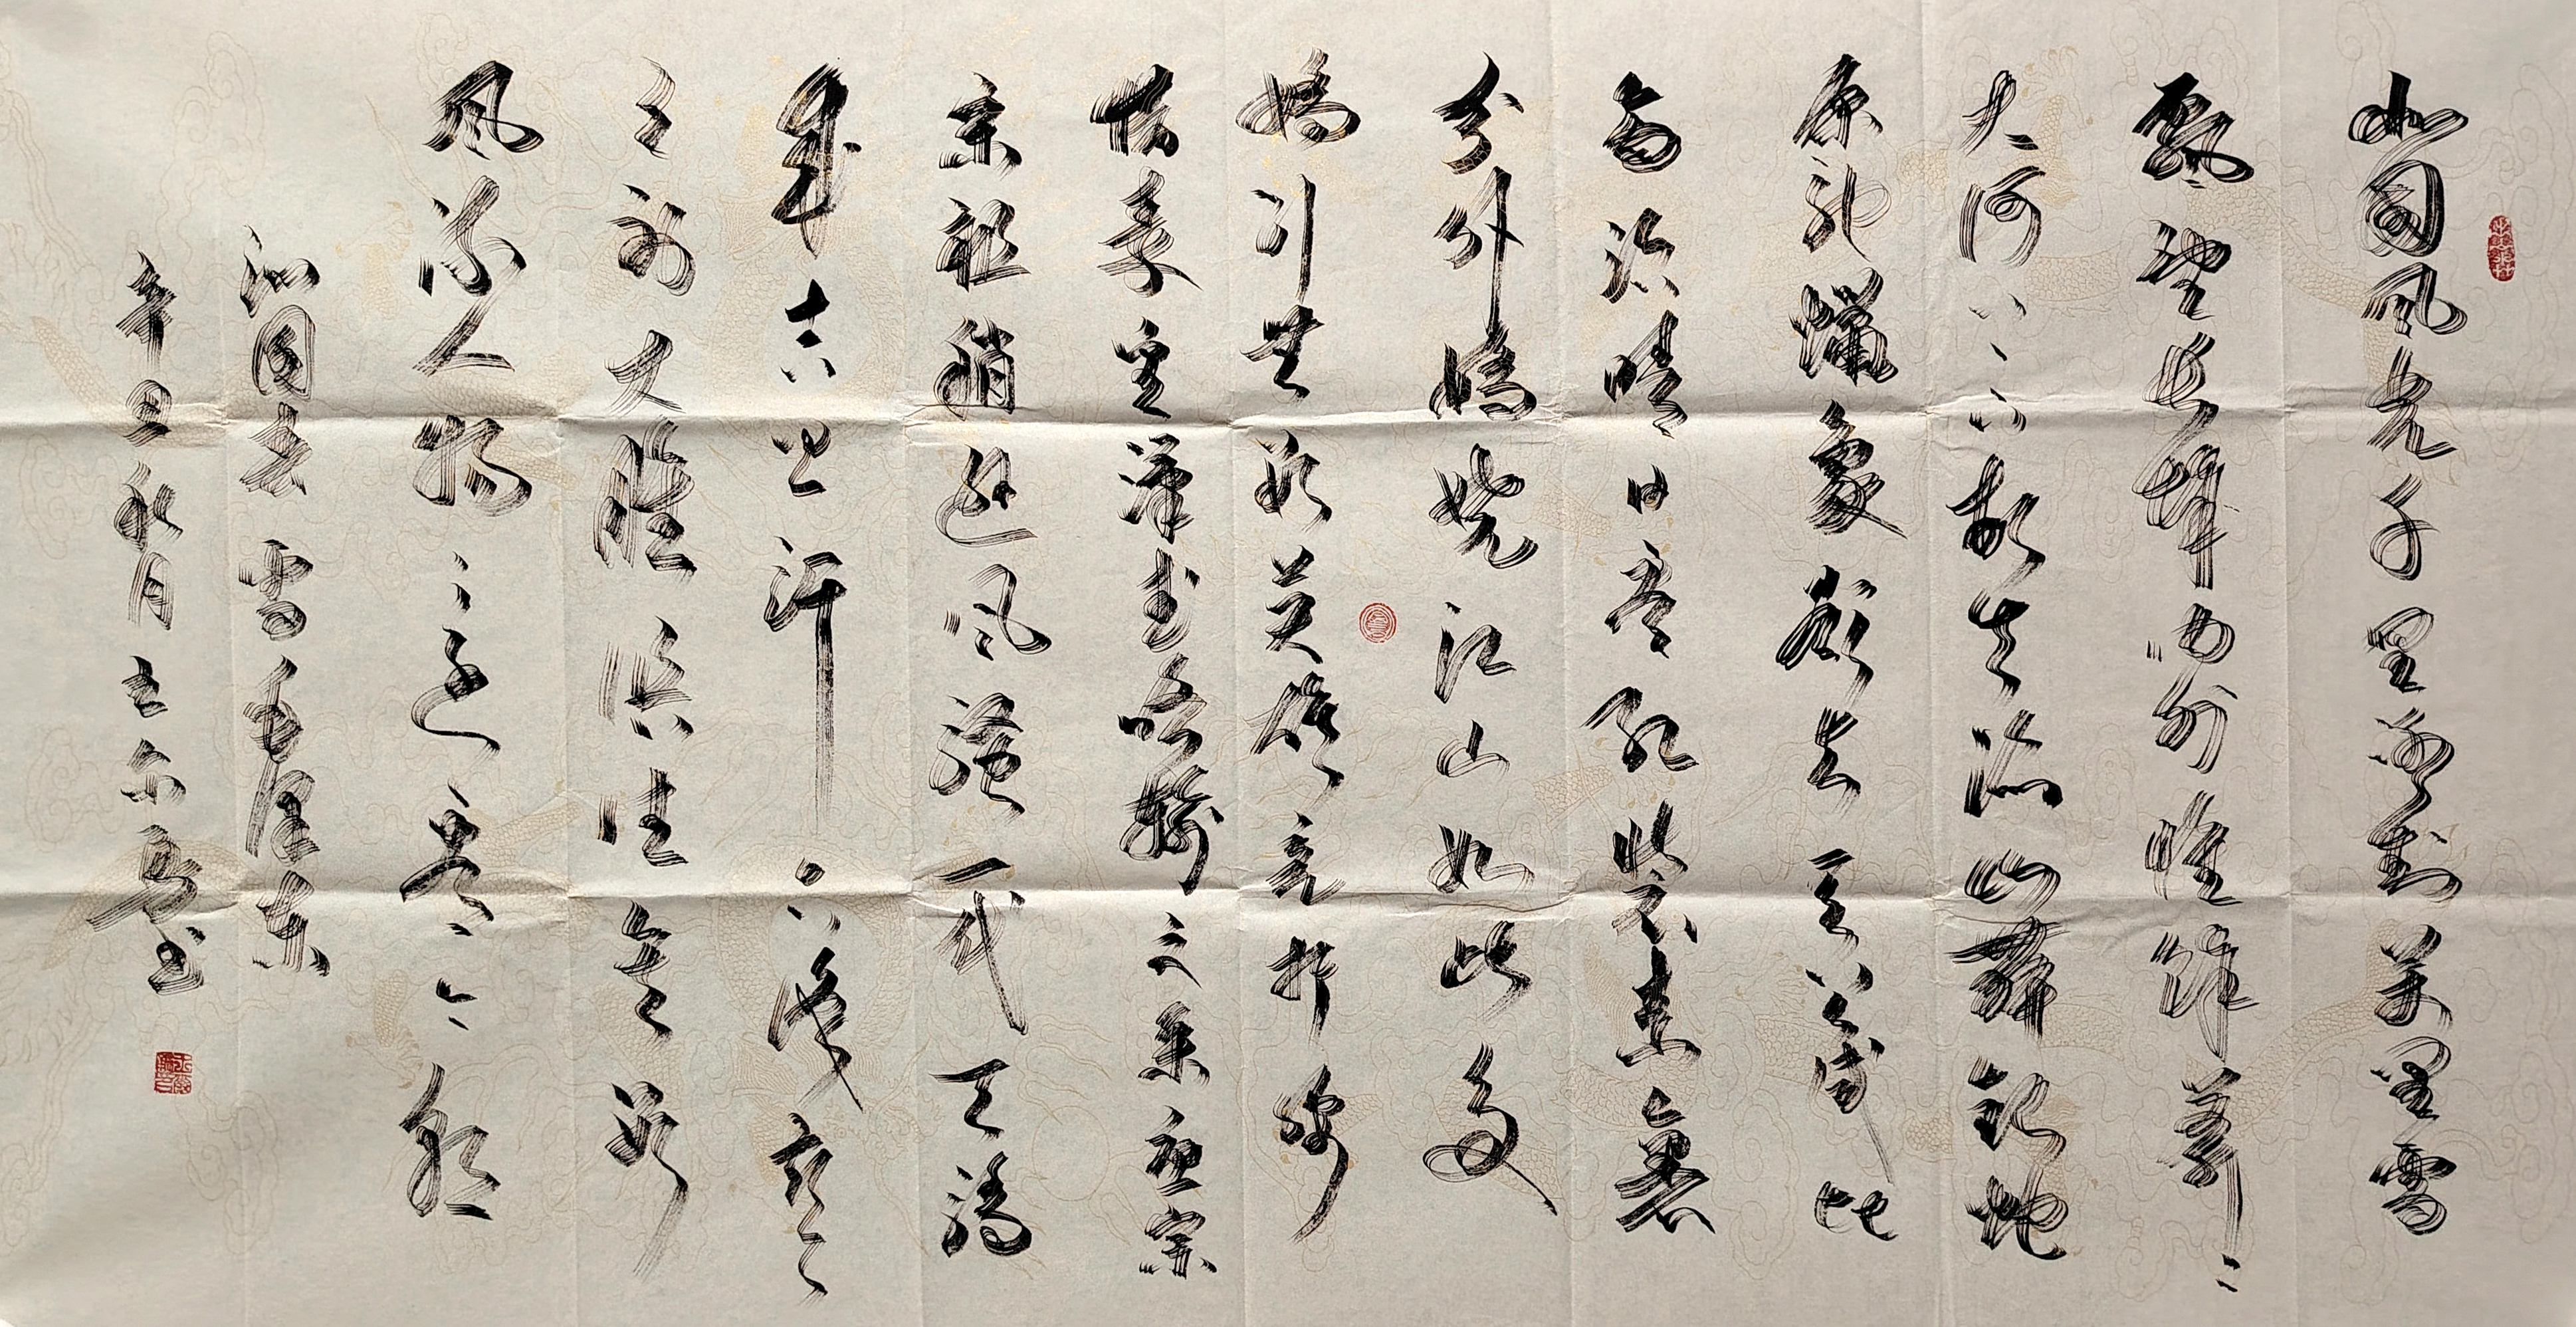 北国风光千里冰封万里雪
飘望长城内外惟馀莽莽
大河上下顿失滔滔山舞银蛇
原驰蜡象欲与天公试比
高须晴日看红装素裹
分外妖娆江山如此多
娇引无数英雄竞折腰
惜秦皇汉武略输文采唐宗
宋祖稍逊风骚一代天骄
成吉思汗只识弯
弓射大雕俱往矣数
风流人物还看今朝
沁园春雪毛泽东
辛丑秋月书